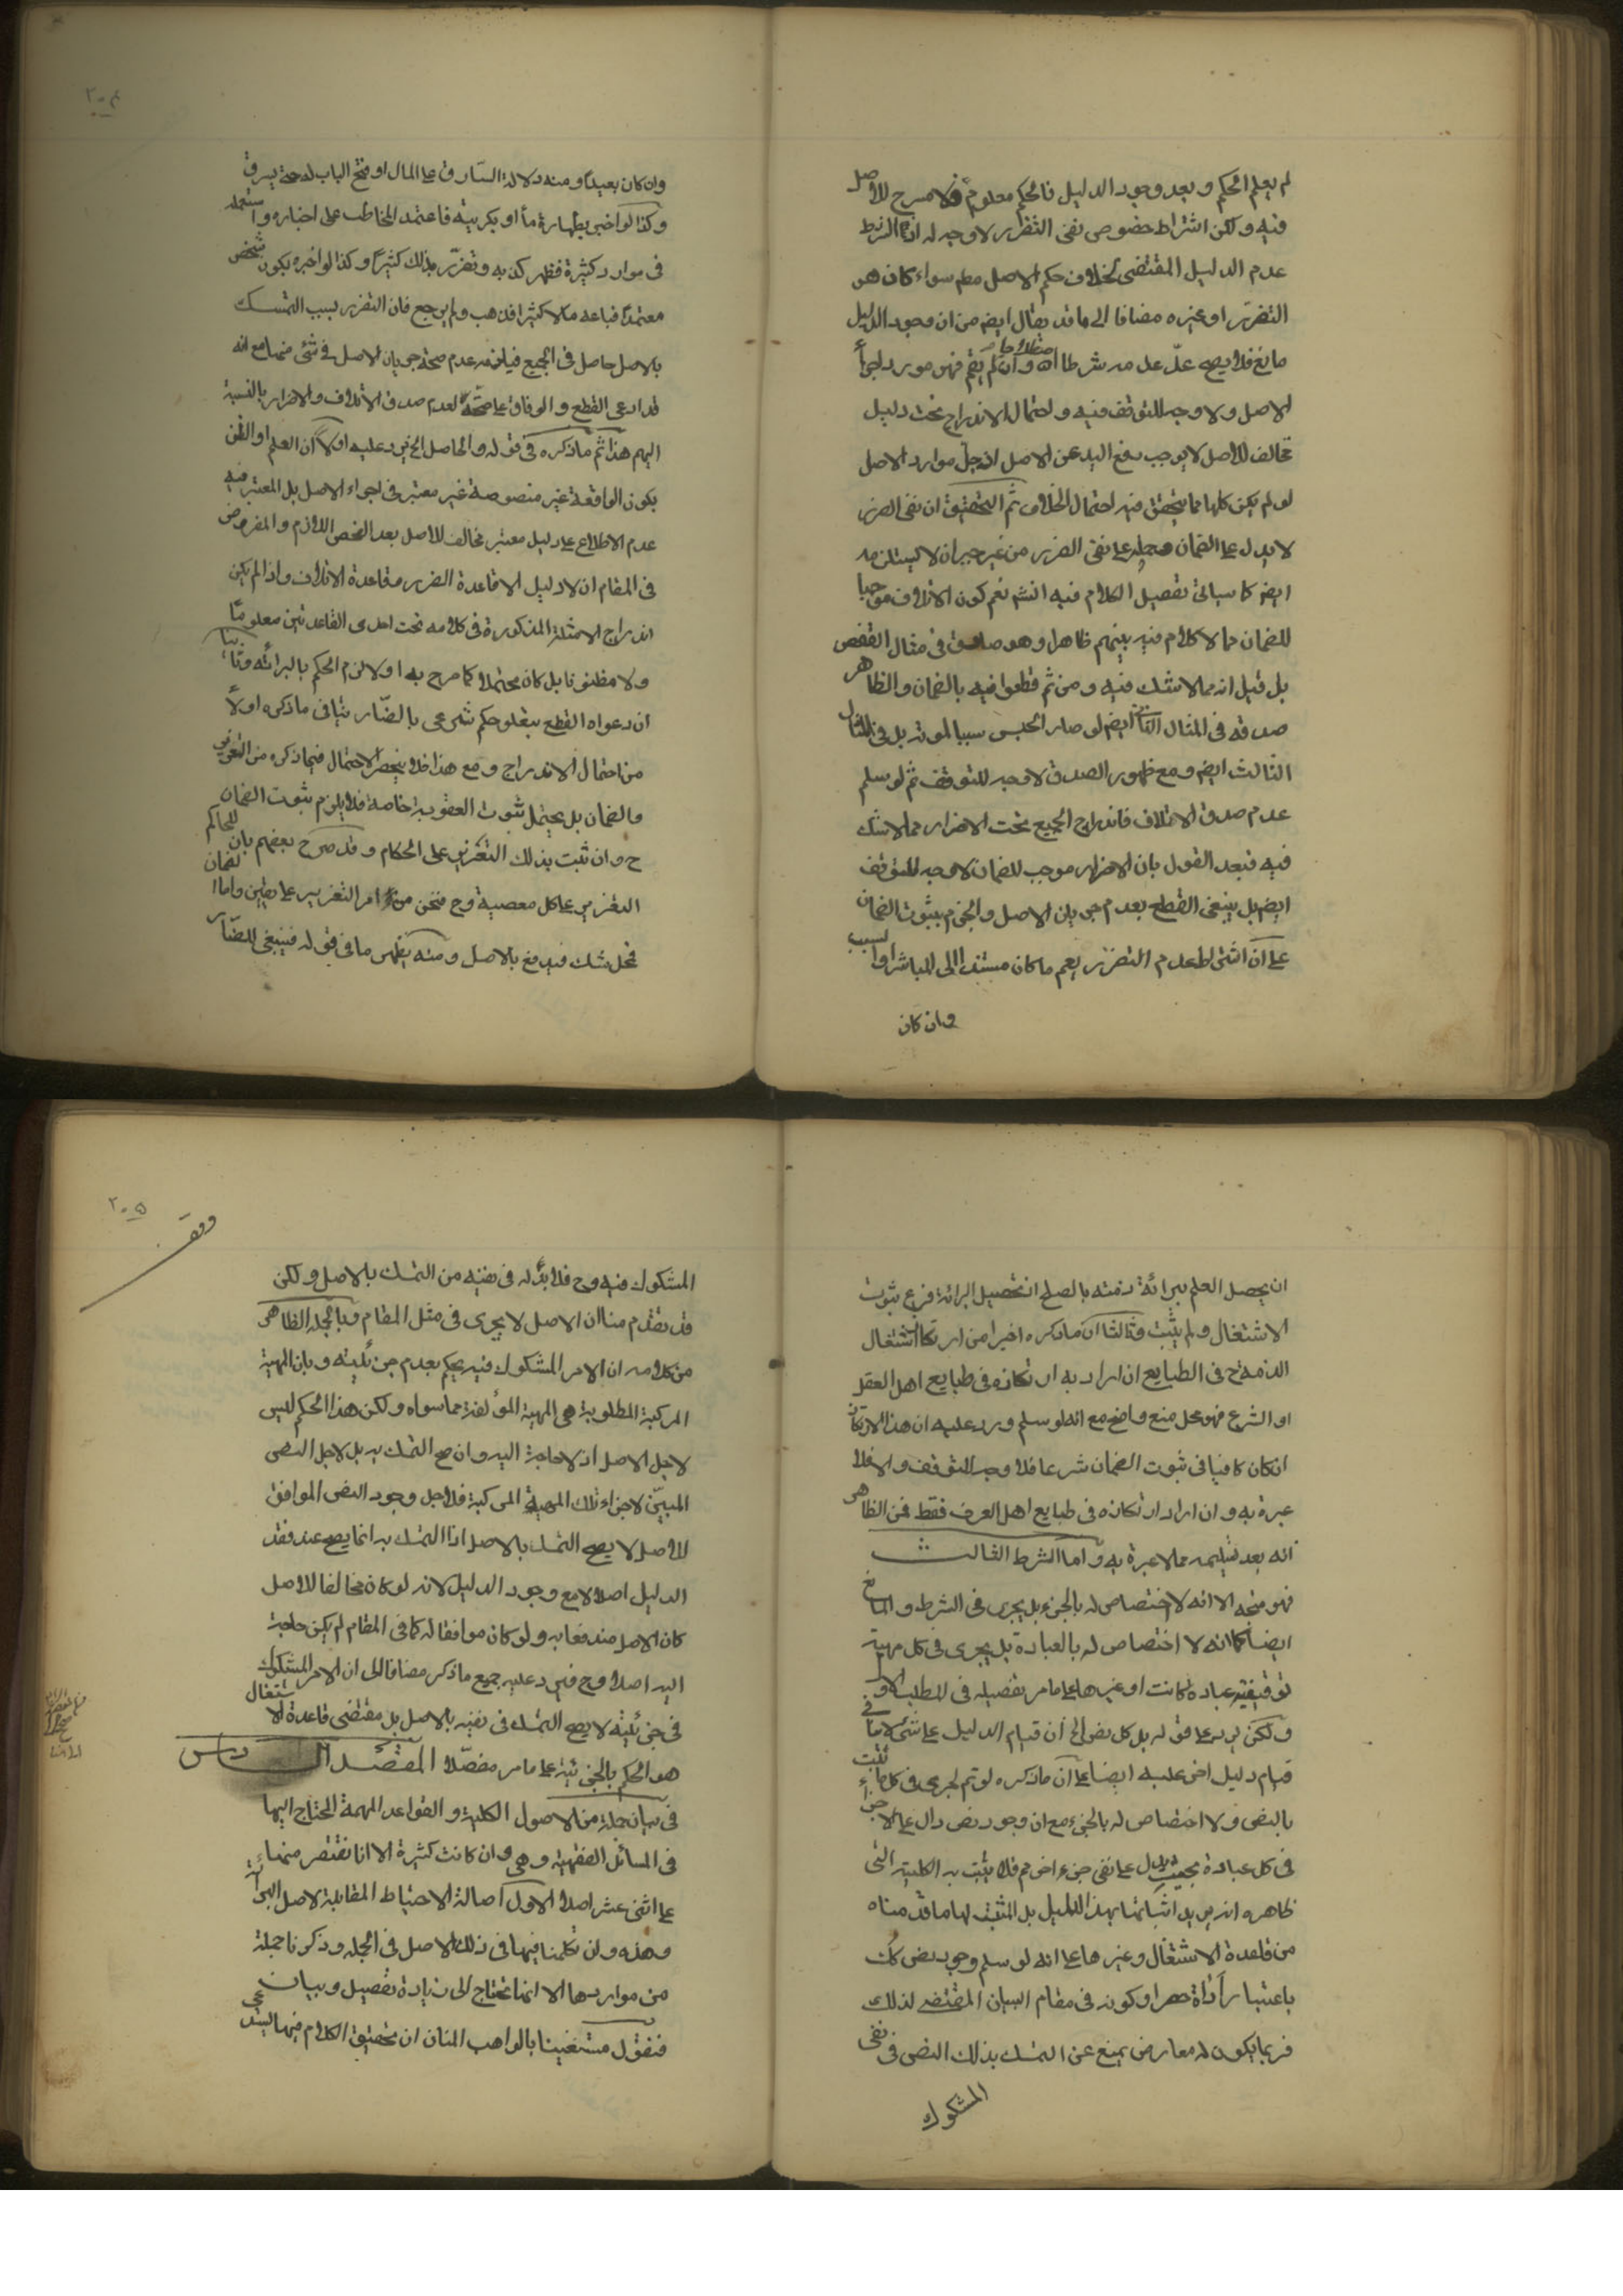 لم يعلم الحكم و بعد وجود الدليل فالحكم معلوم فلا مسرح للاصل
فيه ولكن اشتراط خصوص نفى التضرر لا وجه له اذ الشرط
عدم الدليل المقتضى لخلاف حكم الاصل مطم سواء كان هو
التضرر او غيره مضافا الى ما قد يقال ايضم من ان وجود الدليل
مانع فلا يصح عدّ عدمه شرطا وان لم يقم فهو مورد لجرأ
الاصل ولا وجه للتوقف فيه و احتمال الاندراج تحت دليل
مخالف للاصل لا يوجب رفع اليد عن الاصل اذ جلّ موارد الاصل
لو لم يكن كلها مما يتحقق فيه احتمال الخلاف ثم التحقيق ان نفى الضرر
لا يدل على الضمان و حمله على نفى الضرر من غير جبران لا يستلزمه
ايضم كما سياتى تفصيل الكلام فيه انشم نعم كون الاتلاف موجبا
للضمان مما لا كلام فيه بينهم ظاهرا وهو صادق فى مثال القفص
بل قيل انه مما لا شك فيه و من ثم قطعوا فيه بالضمان والظاهر
صدقه فى المثال الثانى ايضم لو صار الحبس سببا لموته بل فى المثال
الثالث ايضم و مع ظهور الصدق لا وجه للتوقف ثم لو سلم
عدم صدق الاتلاف فاندراج الجميع تحت الاضرار مما لا شك
فيه فبعد القول بان الاضرار موجب للضمان لا وجه للتوقف
ايضم بل ينبغى القطع بعدم جريان الاصل والجزم بثبوت الضمان
على ان اشتراط عدم التضرر يعم ما كان مستندا الى المباشر او السبب
وان كان
٢٠٤
وان كان بعيدا و منه دلالة السّارق على المال او فتح الباب له حتى يسرق
وكذا لو اخبر بطهارة ماء او بكريته فاعتمد المخاطب على اخباره و استعمله
فى موارد كثيرة فظهر كذبه و تضرّر بذلك كثيرا و كذا لو اخبره بكون شخص
معتمدا فباعه مالا كثيرا فذهب ولم يرجع فان التضرر بسبب التمسك
بالاصل حاصل فى الجميع فيلزمه عدم صحة جريان الاصل فى شئ منها مع انه
قد ادعى القطع و الوفاق على صحته لعدم صدق الاتلاف والاضرار بالنسبة
اليهم هذا ثم ما ذكره فى قوله والحاصل الخ يرد عليه اولا ان العلم او الظن
بكون الواقعة غير منصوصة غير معتبر فى اجراء الاصل بل المعتبر فيه
عدم الاطلاع على دليل معتبر مخالف للاصل بعد الفحص اللازم والمفروض
فى المقام ان لا دليل الا قاعدة الضرر و قاعدة الاتلاف واذا لم يكن
اندراج الامثلة المذكورة فى كلامه تحت احدى القاعدتين معلوما
ولا مظنونا بل كان محتملا كما صرح به اولا لزم الحكم بالبرائة و ثانيا
ان دعواه القطع بتعلق حكم شرعى بالضّار ينافى ما ذكره اولاً
من احتمال الاندراج و مع هذا فلا ينحصر الاحتمال فيما ذكره من التعزير
والضمان بل يحتمل ثبوت العقوبة خاصة فلا يلزم ثبوت الضمان
ح وان ثبت بذلك التعزير على الحكام و قد صرح بعضهم بان للحاكم
التعزير على كل معصية وح فنحن من امر التعزير على يقين واما الضمان
فمحل شك فيدفع بالاصل و منه يظهر ما فى قوله فينبغى للضّار
ان يحصل العلم ببرائة ذمته بالصلح اذ تحصيل البرائة فرع ثبوت
الاشتغال ولم يثبت و ثالثا ان ما ذكره اخيرا من ارتكاز اشتغال
الذمة ح فى الطبايع ان اراد به ارتكازه فى طبايع اهل العقل
او الشرع فهو محل منع واضح مع انه لو سلم ورد عليه ان هذا الارتكاز
ان كان كافيا فى ثبوت الضمان شرعا فلا وجه للتوقف والا فلا
عبرة به وان اراد ارتكازه فى طبايع اهل العرف فقط فمن الظاهر
انه بعد تسليمه مما لا عبرة به و اما الشرط الثالث
فهو متجه الا انه لا اختصاص له بالجزء بل يجرى فى الشرط و المانع
ايضا كما انه لا اختصاص له بالعبادة بل يجرى فى كل مهية
توقيفية عبادة كانت او غيرها على ما مر تفصيله فى المطلب الاول
ولكن يرد على قوله بل كل نص الخ ان قيام الدليل على شئ لا ينافى
قيام دليل اخر عليه ايضا على ان ما ذكره لو تم لجرى فى كل ما ثبت
بالنص ولا اختصاص له بالجزء مع ان وجود نص دال على الاجزاء
فى كل عبادة بحيث يدل على نفى جزء اخر مم فلا يثبت به الكلية التى
ظاهره انه يريد اثباتها بهذا الدليل بل المثبت لها ما قدمناه
من قاعدة الاشتغال و غيرها على انه لو سلم وجود نص كك
باعتبار أداة حصر او كونه فى مقام البيان المقتضى لذلك
فربما يكون له معارض يمنع عن التمسك بذلك النص فى نفى
المشكوك
٢٠٥
وقف
المشكوك فيه وح فلا بدّ له فى نفيه من التمسك بالاصل ولكن
قد تقدم منا ان الاصل لا يجرى فى مثل المقام و بالجملة الظاهر
من كلامه ان الامر المشكوك فيه يحكم بعدم جزئيته و بان المهية
المركبة المطلوبة هى المهية المؤلفة مما سواه ولكن هذا الحكم ليس
لاجل الاصل اذ لا حاجة اليه وان صح التمسك به بل لاجل النص
المبيّن لاجزاء تلك المهية المركبة فلاجل وجود النص الموافق
للاصل لا يصح التمسك بالاصل اذ التمسك به انما يصح عند فقد
الدليل اصلا لا مع وجود الدليل لانه لو كان مخالفا للاصل
كان الاصل مندفعا به ولو كان موافقا له كما فى المقام لم يكن حاجة
اليه اصلا وح فيرد عليه جميع ما ذكر مضافا الى ان الامر المشكوك
فى جزئيته لا يصح التمسك فى نفيه بالاصل بل مقتضى قاعدة الاشتغال
هو الحكم بالجزئية على ما مر مفصّلا المقصد السادس
فى بيان جملة من الاصول الكلية و القواعد المهمة المحتاج اليها
فى المسائل الفقهية وهى وان كانت كثيرة الا انا نقتصر منها
على اثنى عشر اصلا الاول اصالة الاحتياط المقابلة لاصل البرائة
وهذه وان تكلمنا فيها فى ذلك الاصل فى الجملة و ذكرنا جملة
من مواردها الا انها تحتاج الى زيادة تفصيل و بيان
فنقول مستعينا بالواهب المنان ان تحقيق الكلام فيها يستدعى